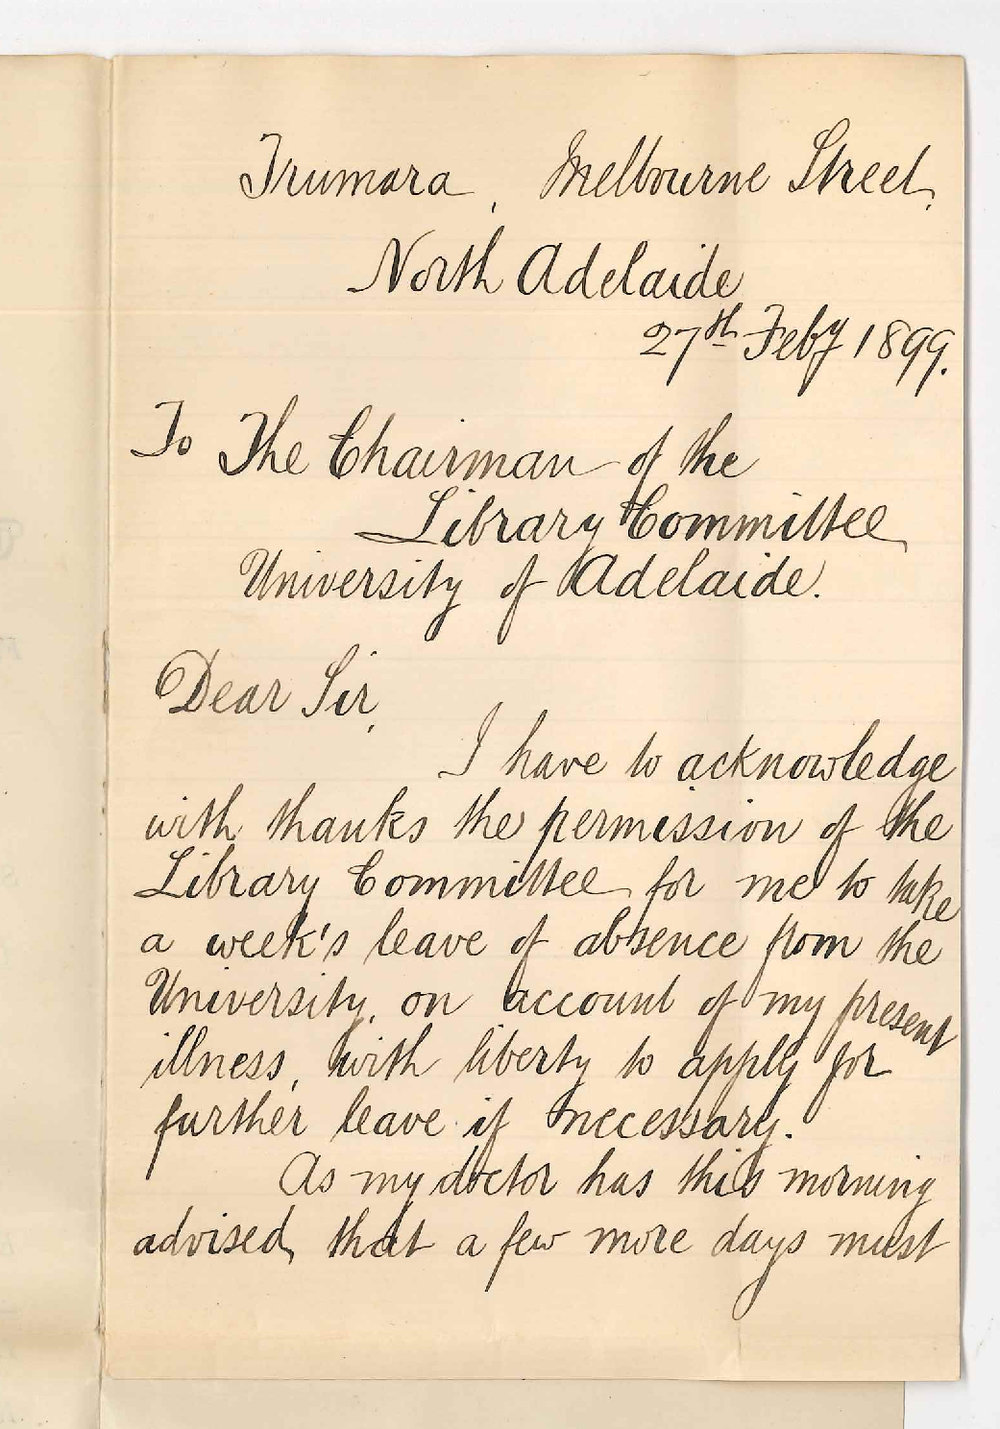 Trumara, Melbourne Street,
North Adelaide
27th Feby 1899.
To The Chairman of the
Library Committee
University of Adelaide.
Dear Sir,
I have to acknowledge
with thanks the permission of the
Library Committee for me to take
a week's leave of absence from the
University, on account of my present
illness, with liberty to apply for
further leave if necessary.
As my doctor has this morning
advised, that a few more days must